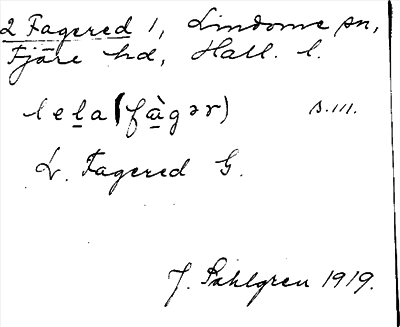 2 Fagered 1, Lindome sn,
Fjäre hd, Hall. l.
lela (fàgər) s. 111.
L. Fagered G.
J. Sahlgren 1919.